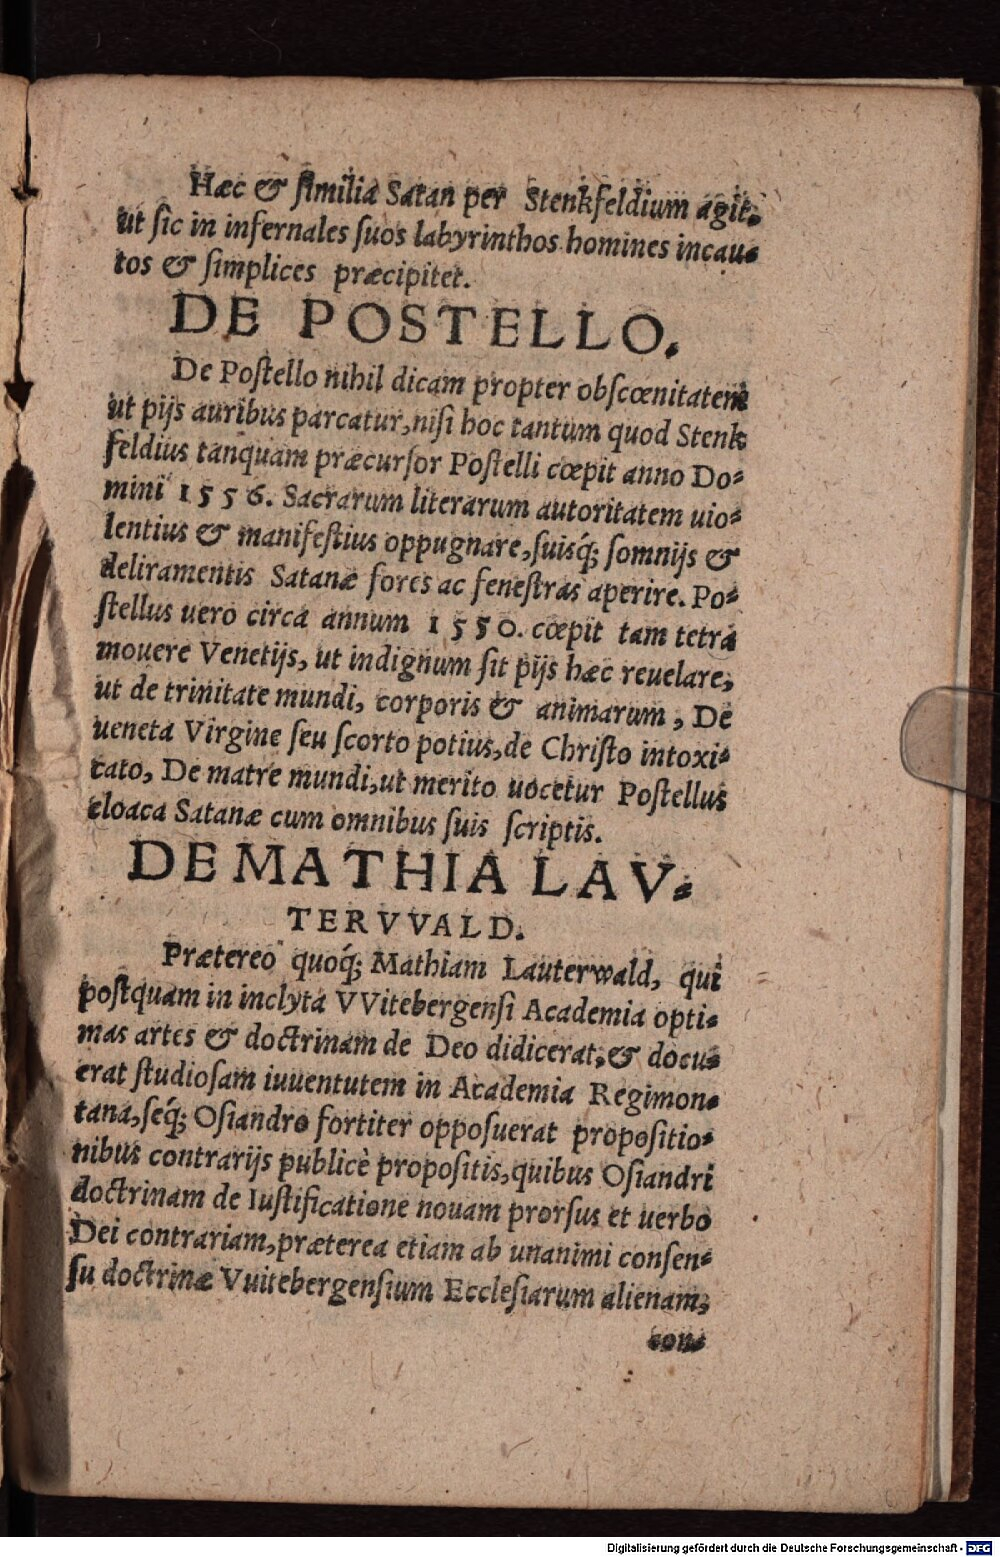 Hæc & ſimilia Satan per Stenkfeldium agit,
ut ſic in infernales ſuos labyrinthos homines incau-
tos & ſimplices præcipitet.
DE POSTELLO.
De Poſtello nihil dicam propter obſcœnitatem
ut pijs auribus parcatur, niſi hoc tantum quod Stenk
feldius tanquam præcurſor Poſtelli cœpit anno Do-
mini 1556. Sacrarum literarum autoritatem uio-
lentius & manifeſtius oppugnare, ſuisq́; ſomnijs &
deliramentis Satanæ fores ac feneſtras aperire. Po-
ſtellus uero circa annum 1550. cœpit tam tetra
mouere Venetijs, ut indignum ſit pijs hæc reuelare,
ut de trinitate mundi, corporis & animarum, De
ueneta Virgine ſeu ſcorto potius, de Chriſto intoxi-
cato, De matre mundi, ut merito uocetur Poſtellus
cloaca Satanæ cum omnibus ſuis ſcriptis.
DE MATHIA LAV-
TERVVALD.
Prætereo quoq́; Mathiam Lauterwald, qui
poſtquam in inclyta VVitebergenſi Academia opti-
mas artes & doctrinam de Deo didicerat, & docu-
erat ſtudioſam iuuentutem in Academia Regimon-
tana, ſeq́; Oſiandro fortiter oppoſuerat propoſitio-
nibus contrarijs publicè propoſitis, quibus Oſiandri
doctrinam de Iuſtificatione nouam prorſus et uerbo
Dei contrariam, præterea etiam ab unanimi conſen-
ſu doctrinæ Vuitebergenſium Eccleſiarum alienam,
con-
Digitalisierung gefördert durch die Deutsche Forschungsgemeinschaft - DFG